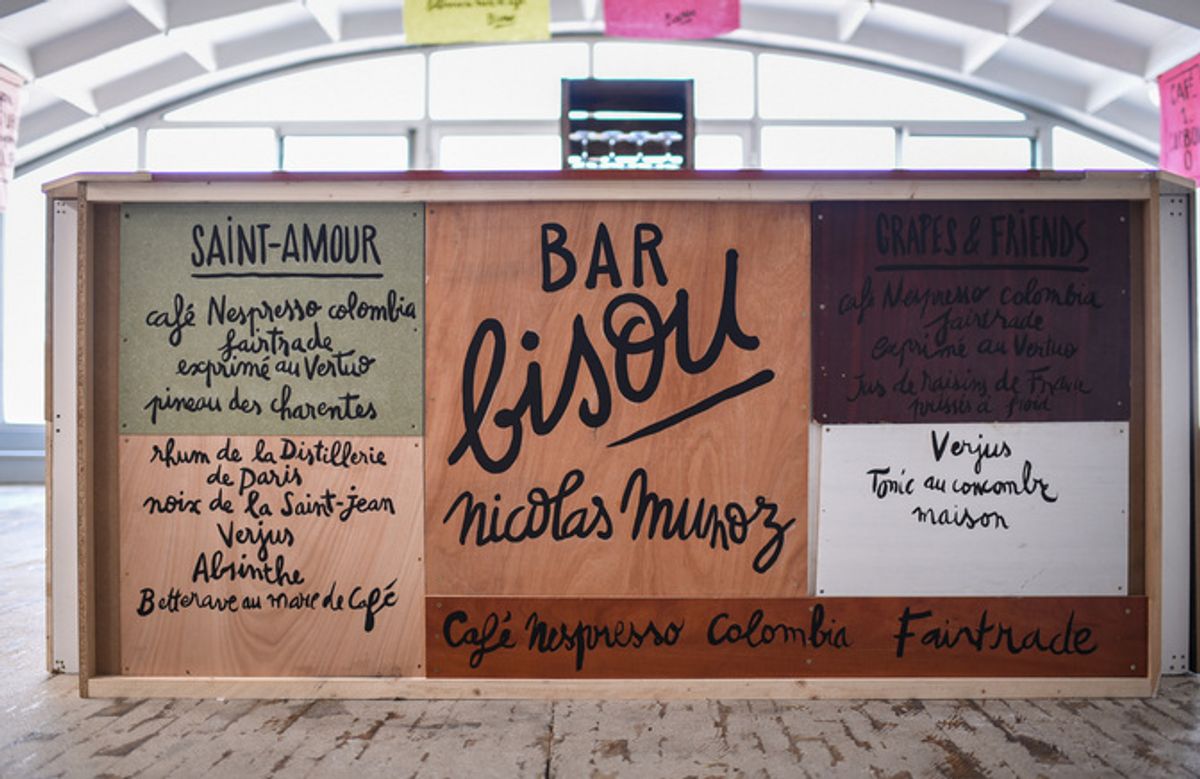 SAINT-AMOUR
café Nespresso colombia
fairtrade
exprimé au Vertuo
pineau des charentes
rhum de la Distillerie
de Paris
noix de la Saint-jean
Verjus
Absinthe
Betterave au marc de Café
BAR
bisou
nicolas munoz
GRAPES & FRIENDS
café Nespresso colombia
fairtrade
exprimé au Vertuo
Jus de raisins de
à froid
Verjus
Tonic au concombre
maison
Café Nespresso Colombia Fairtrade
CAFÉ